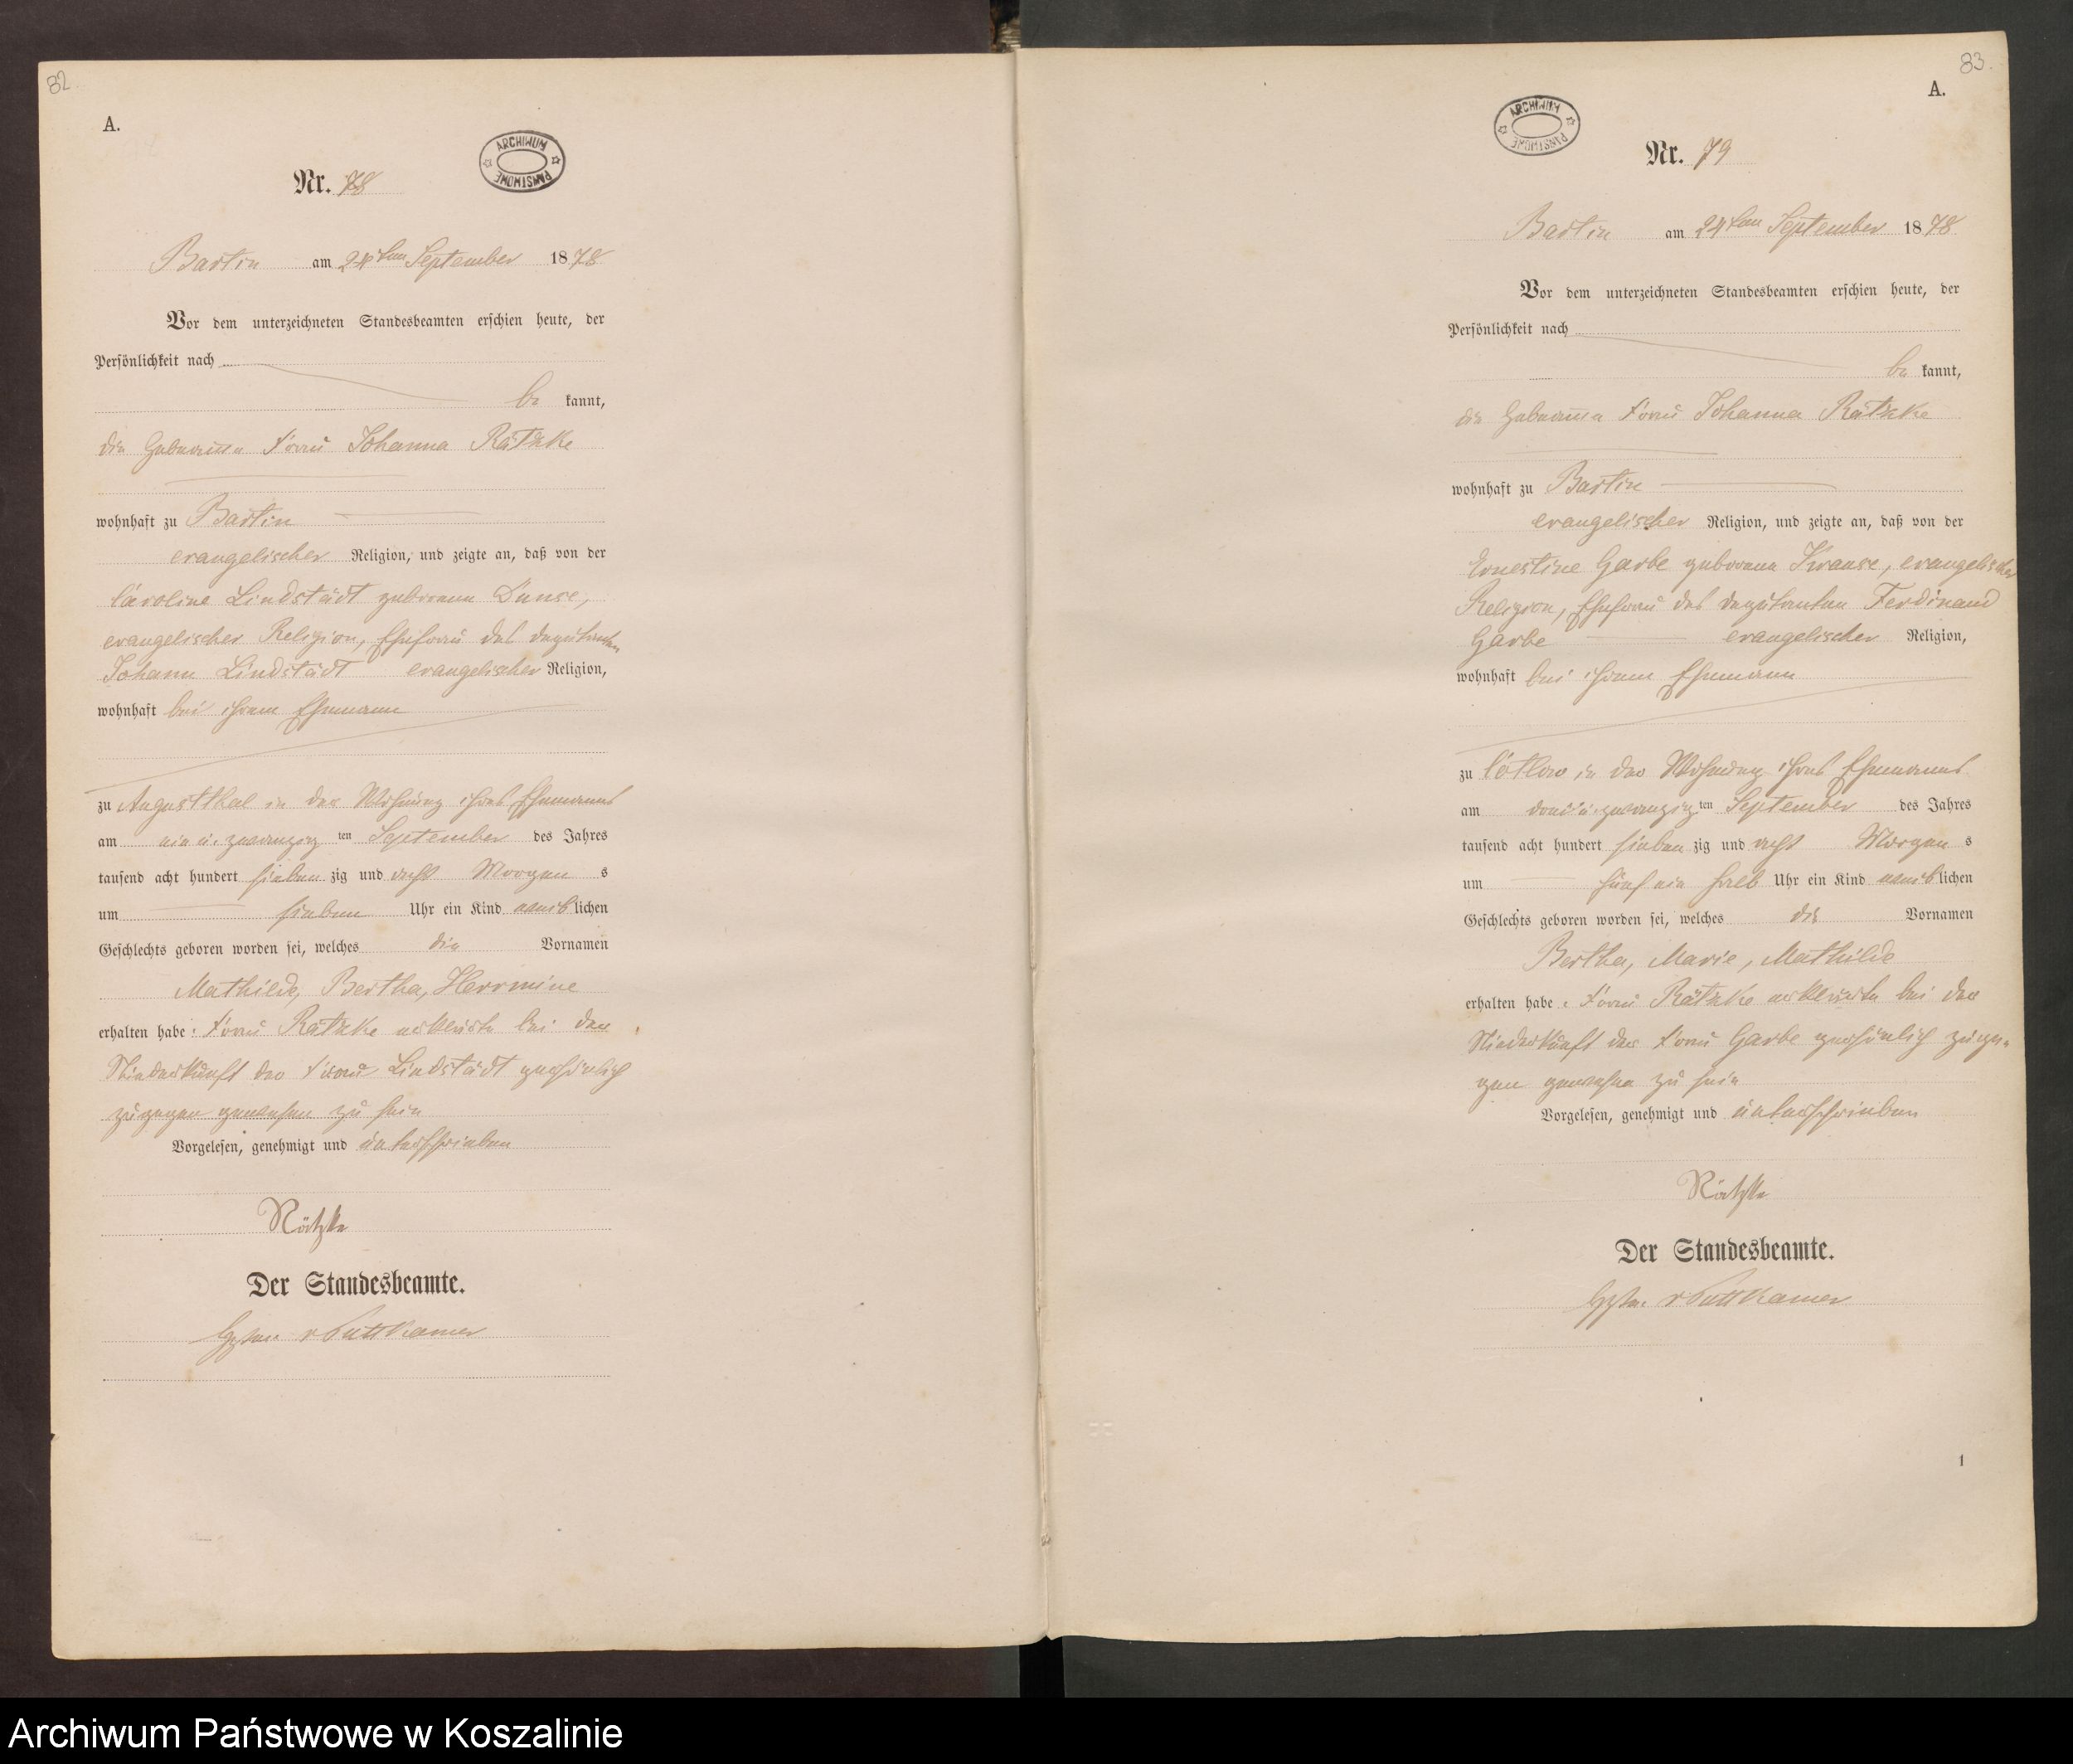 82.
A.
ARCHIWUM PAŃSTWOWE
Nr. 78
Bartin am 24ten September 1878
Vor dem unterzeichneten Standesbeamten erschien heute, der
Persönlichkeit nach
be kannt,
die Hebamme Frau Johanna Rätzke
wohnhaft zu Bartin
evangelischer Religion, und zeigte an, daß von der
Caroline Lindstädt geborene Dunse,
evangelischer Religion, Ehefrau des Deputanten
Johann Lindstädt evangelischer Religion,
wohnhaft bei ihrem Ehemann
zu Augustthal in der Wohnung ihres Ehemannes
am ein u. zwanzig ten September des Jahres
tausend acht hundert sieben zig und acht Morgen s
um sieben Uhr ein Kind weib lichen
Geschlechts geboren worden sei, welches die Vornamen
Mathilde, Bertha, Herrmine
erhalten habe. Frau Rätzke erklärte bei der
Niederkunft der Frau Lindstädt persönlich
zugegen gewesen zu sein
Vorgelesen, genehmigt und unterschrieben
Rätzke
Der Standesbeamte.
v Puttkamer
83.
A.
ARCHIWUM PAŃSTWOWE
Nr. 79
Bartin am 24ten September 1878
Vor dem unterzeichneten Standesbeamten erschien heute, der
Persönlichkeit nach
be kannt,
die Hebamme Frau Johanna Rätzke
wohnhaft zu Bartin
evangelischer Religion, und zeigte an, daß von der
Ernestine Garbe geborene Krause, evangelischer
Religion, Ehefrau des Deputanten Ferdinand
Garbe evangelischer Religion,
wohnhaft bei ihrem Ehemann
zu Cötlow in der Wohnung ihres Ehemannes
am drei u. zwanzig ten September des Jahres
tausend acht hundert sieben zig und acht Morgen s
um fünf ein halb Uhr ein Kind weib lichen
Geschlechts geboren worden sei, welches die Vornamen
Bertha, Marie, Mathilde
erhalten habe. Frau Rätzke erklärte bei der
Niederkunft der Frau Garbe persönlich zuge-
gen gewesen zu sein
Vorgelesen, genehmigt und unterschrieben
Rätzke
Der Standesbeamte.
v Puttkamer
1
Archiwum Państwowe w Koszalinie